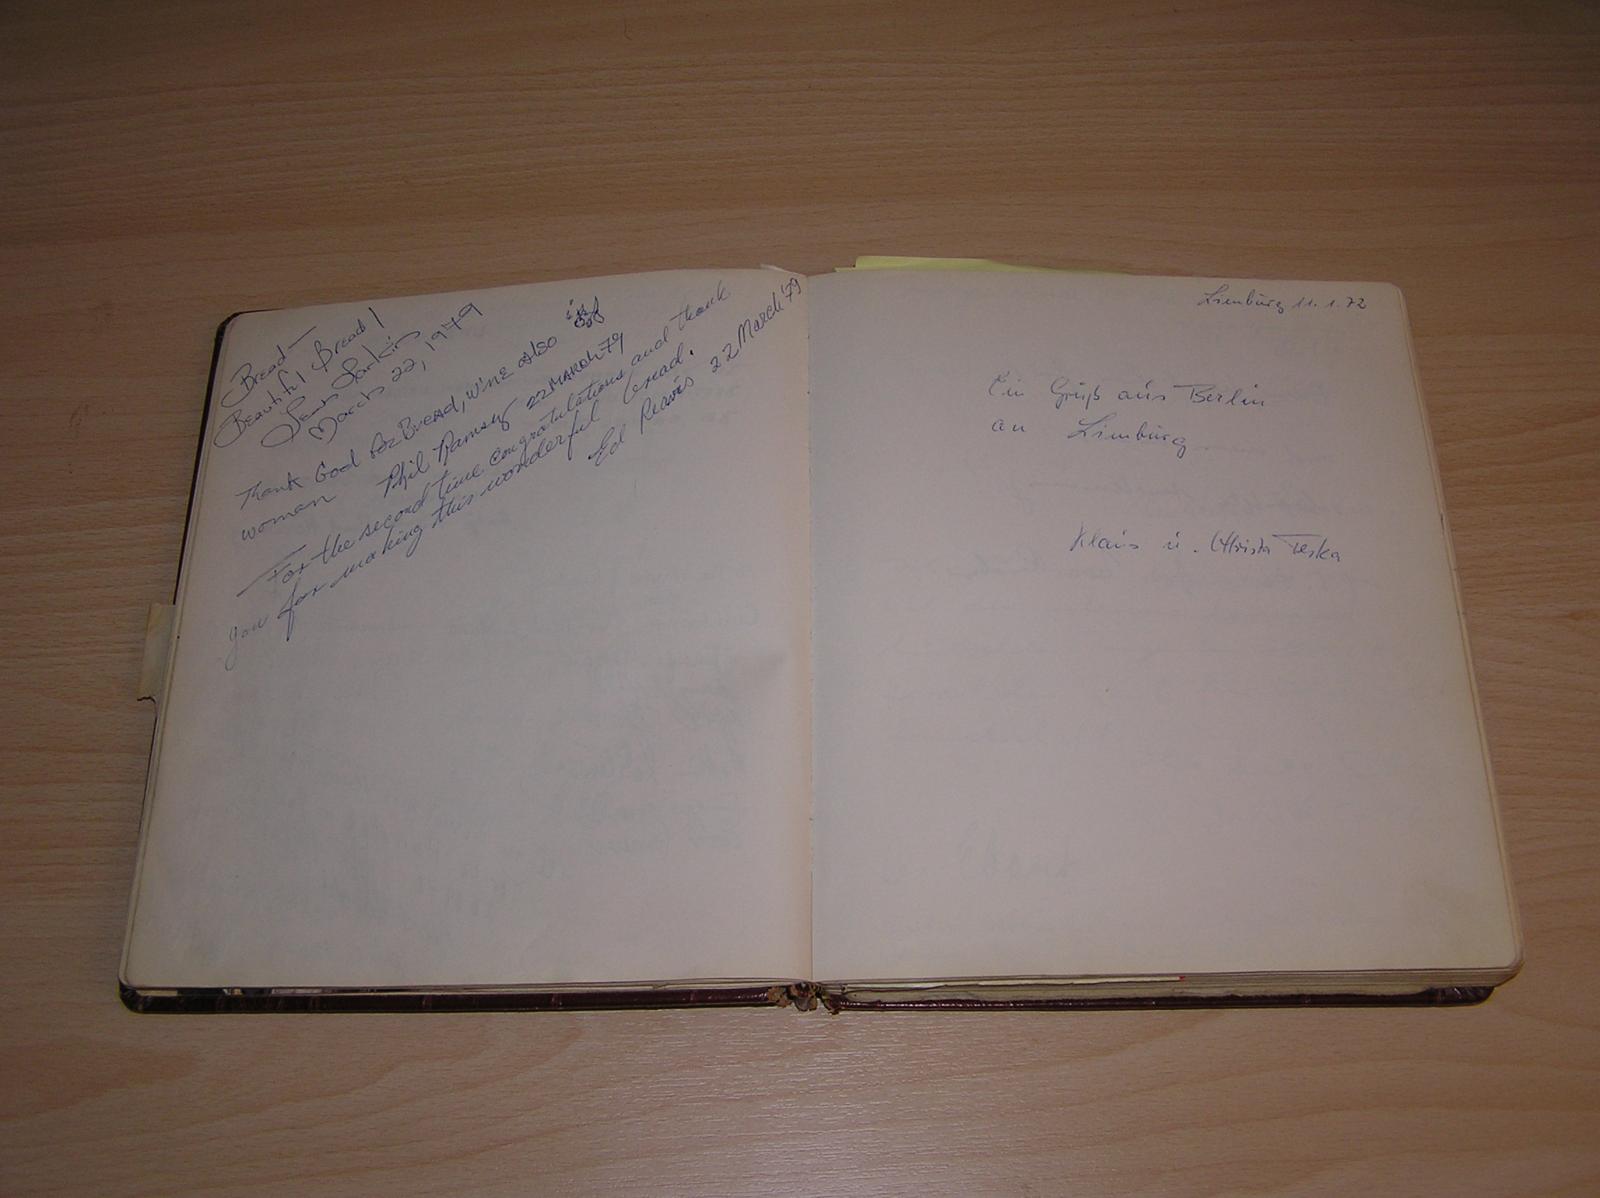 Bread—
Beautiful Bread!
March 22, 1979
Thank God for Bread, wine also
woman Phil Ramsey 22 MARCH 79
For the second time congratulations and thank
you for making this wonderful bread.
Ed Reavis 22 March '79
Limburg 11.1.72
Ein Gruß aus Berlin
an Limburg
Klaus u. Christa Teska